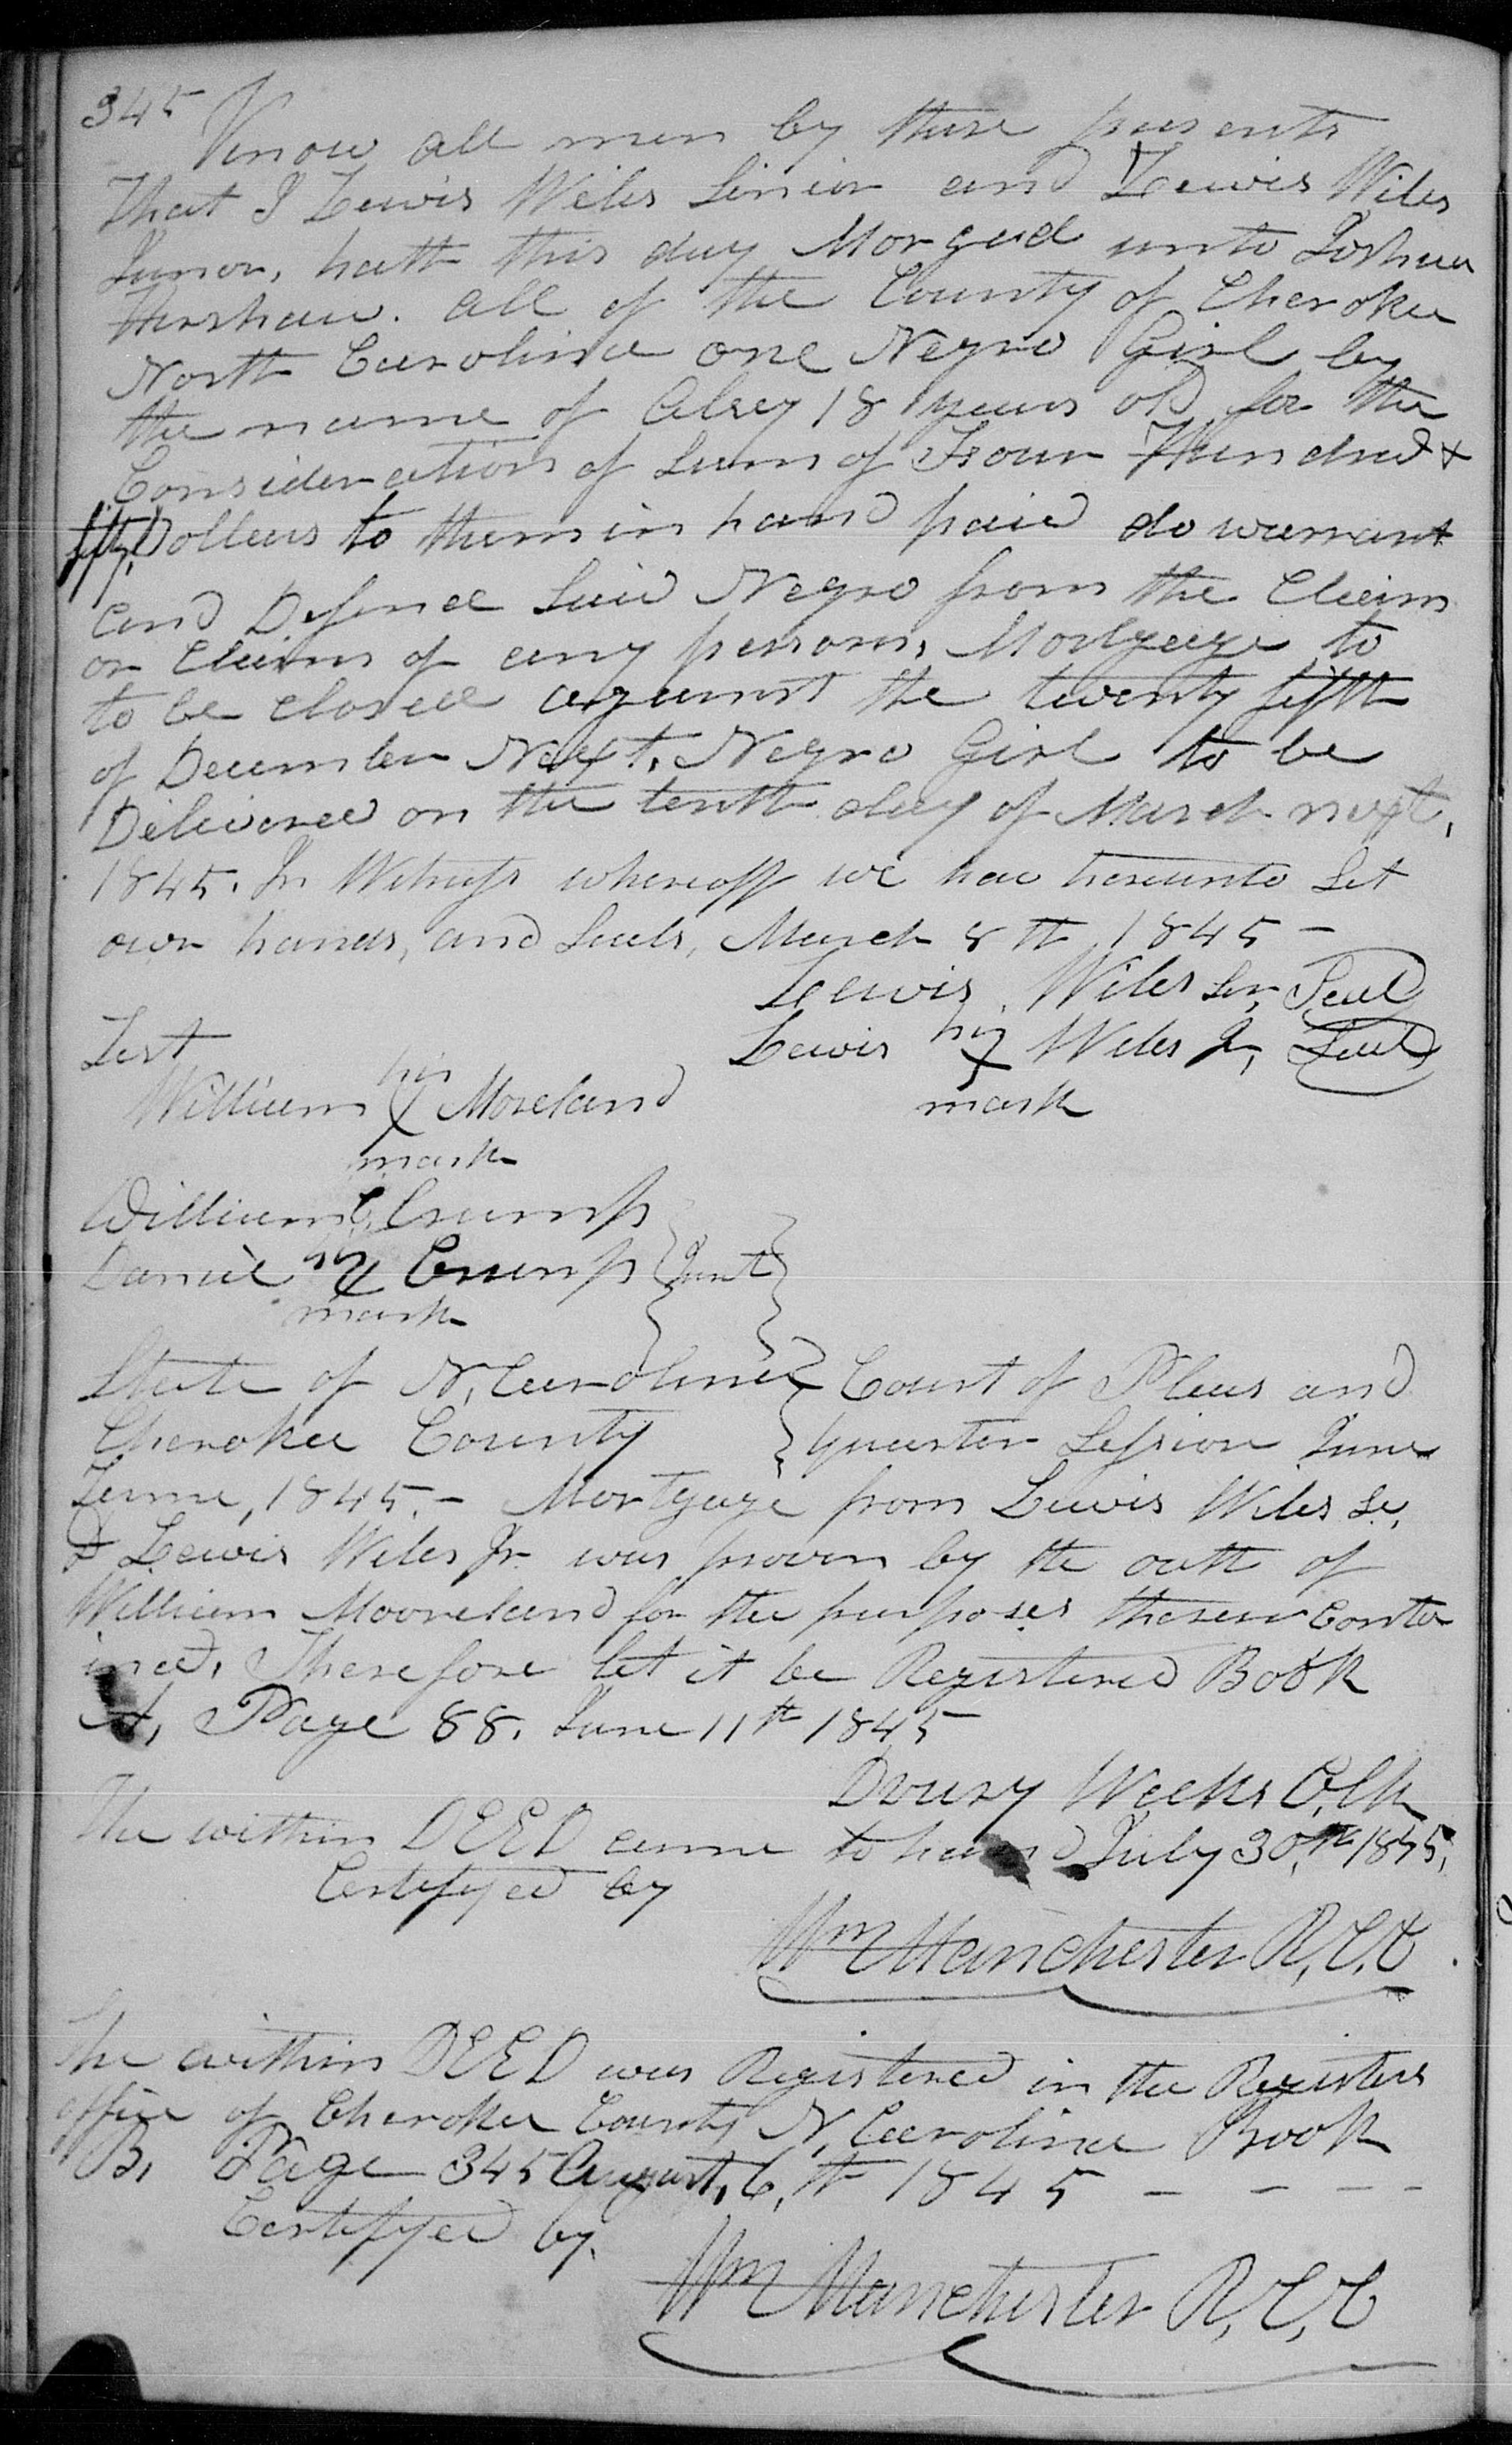 345
Know all men by these presents
that I Lewis Wiles Sinior and Lewis Wiles
Junor, hath this day Morgad unto Joshua
Hershaw. all of the County of Cherokee
North Carolina one Negro Girl by
the name of Alsey 18 years old for the
Consideration of Sum of Four Hundred &
fifty Dollars to them in hand paid do warrant
and Defend Said Negro from the Claim
or Claims of any persons, Mortgage to
to be closed against the twenty fifth
of December Next, Negro Girl to be
Delivered on the tenth day of March next,
1845. In Witness whereoff we have hereunto Set
our hands, and Seals, March 8th 1845 -
Lewis Wiles Sr, Seal
Lewis his X Wiles Jr, Seal
mark
Test
William his X Moreland
mark
William C. Crump
Daniel his X Crump } Jurat }
mark
State of N, Carolina } Court of Pleas and
Cherokee County } Quarter Session June
Terme, 1845. - Mortgage from Lewis Wiles Sr,
& Lewis Wiles Jr was proven by the oath of
William Mooreland for the purposes therein Conta
ined, Therefore let it be Registered Book
A, Page 88, June 11th 1845
Drury Weeks C,lk
The within DEED came to hand July 30,th 1845,
Certifyed by
Wm Manchester R, C, C
The within DEED was Registered in the Registers
office of Cherokee County N, Carolina Book
B, Page 345 August, 6,th 1845 - - - -
Certifyed by.
Wm Manchester R, C, C